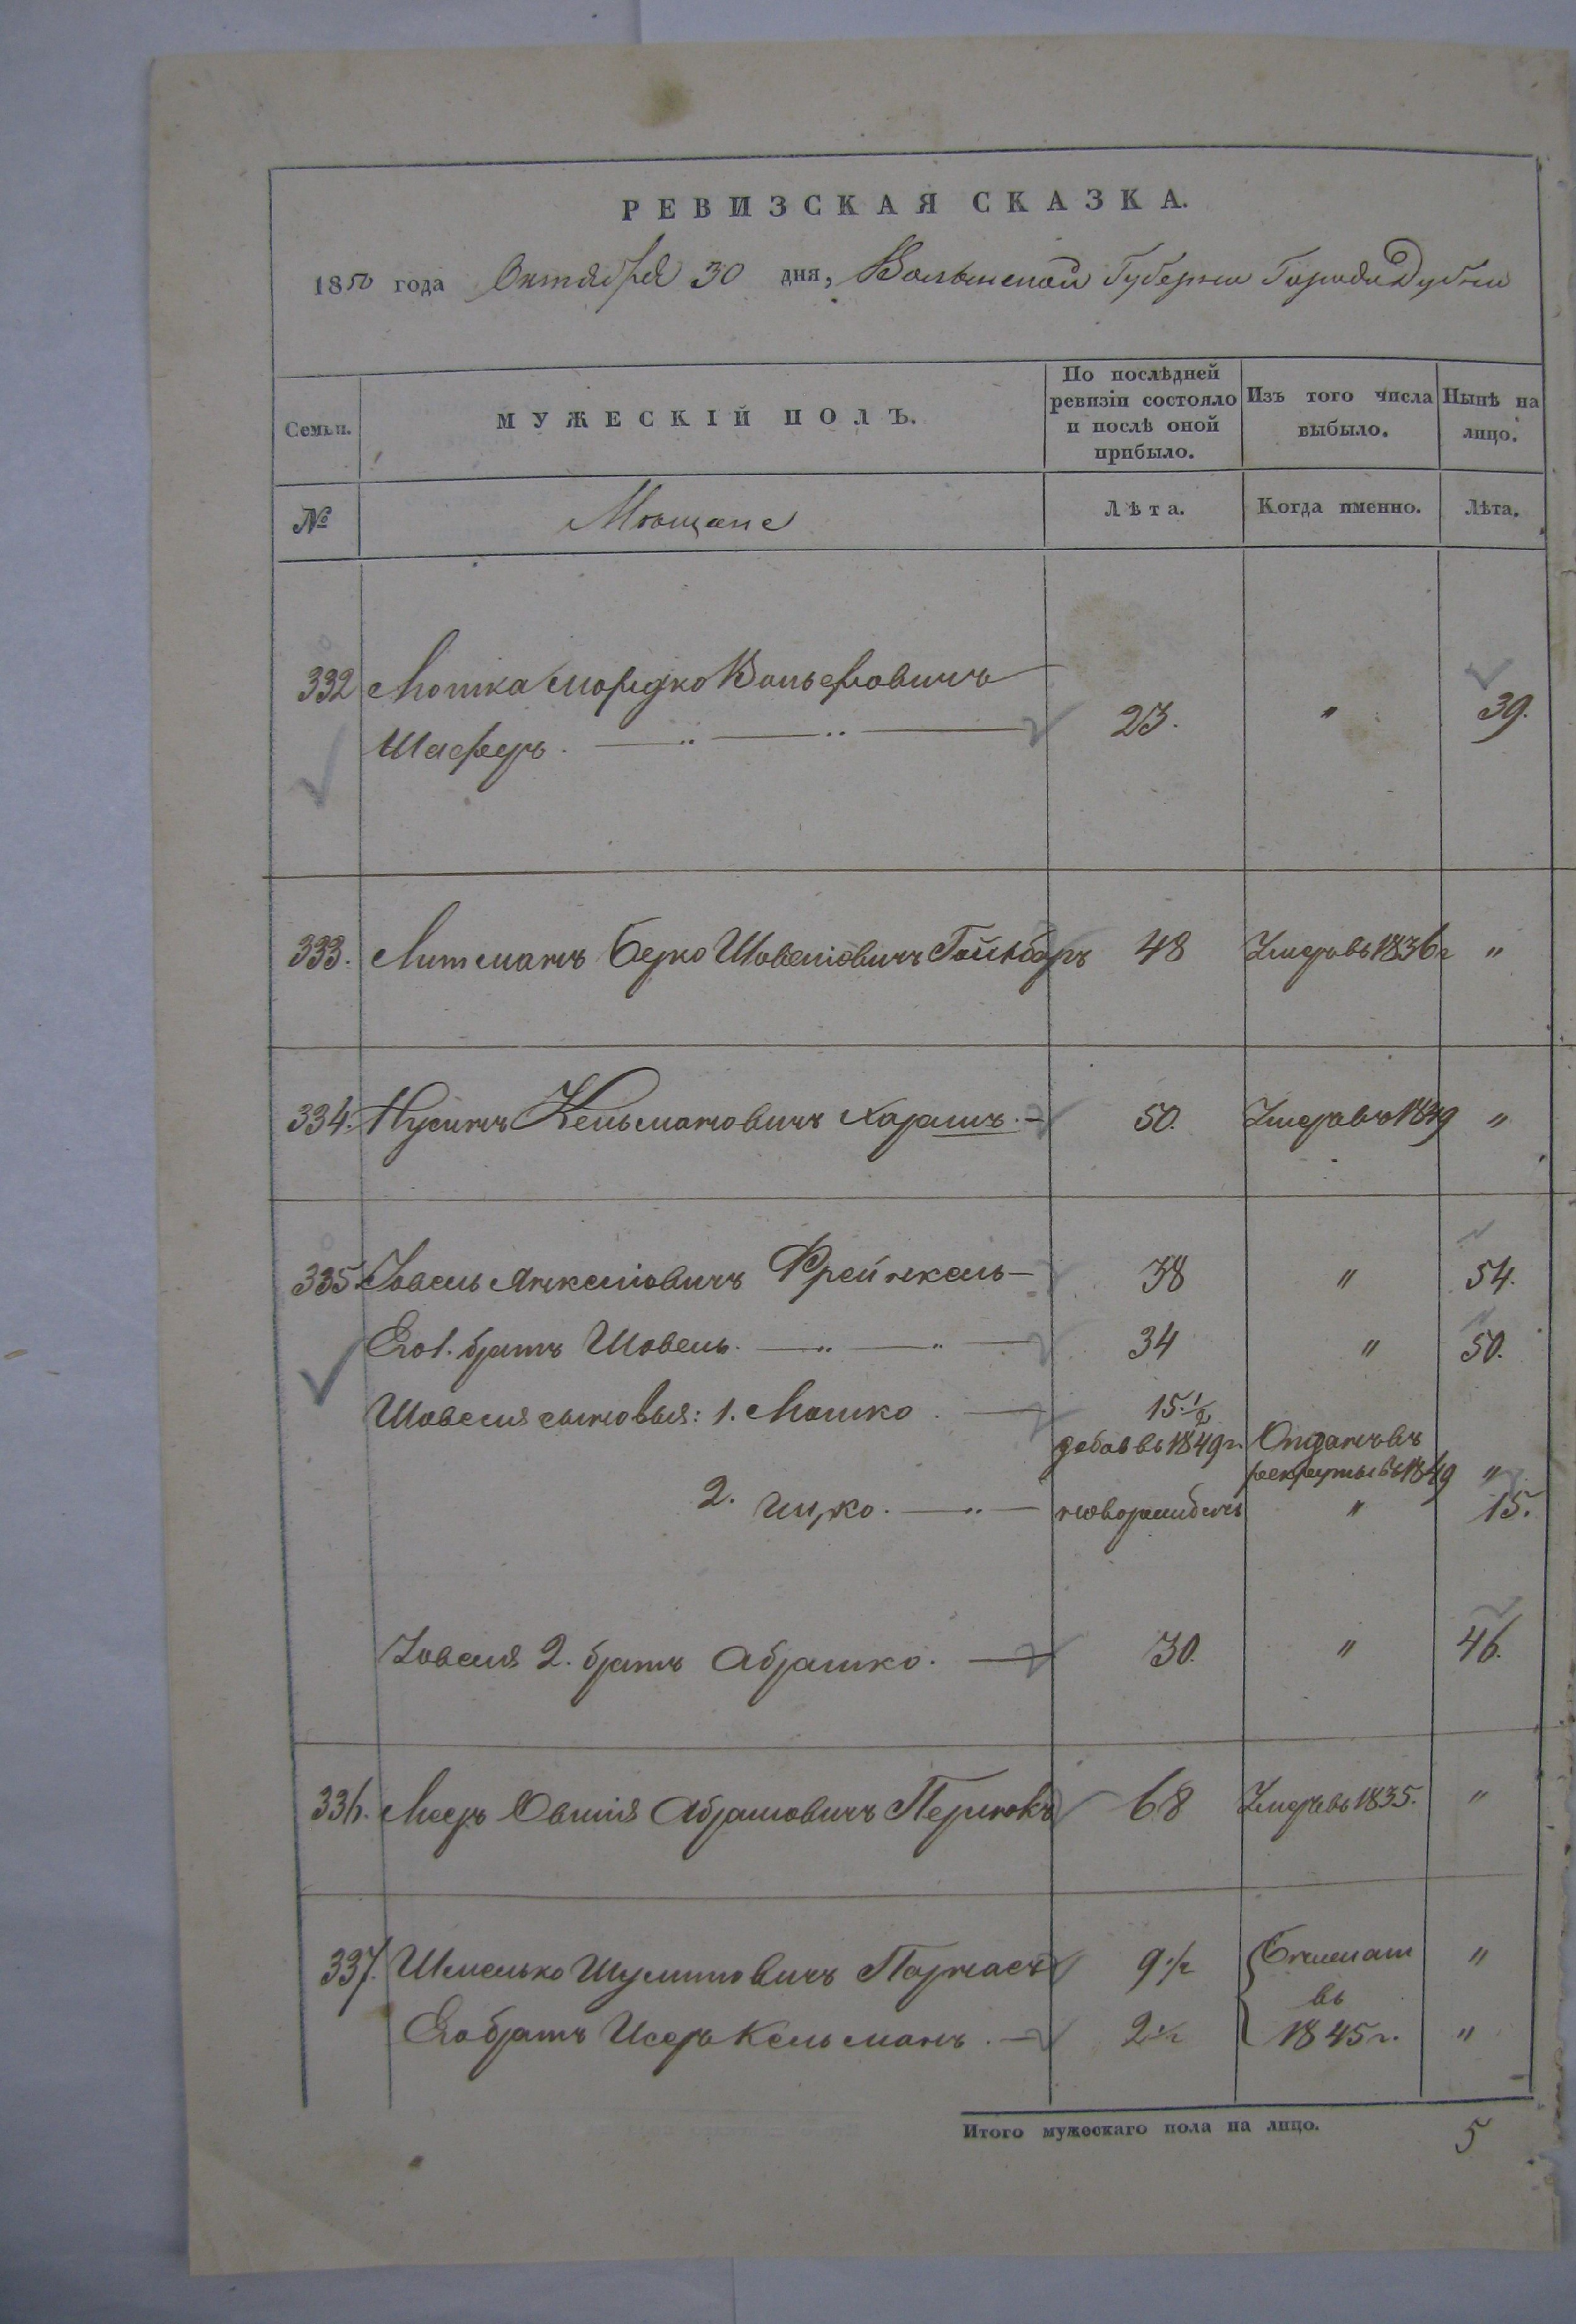 РЕВИЗСКАЯ СКАЗКА.
1850 года Октября 30 дня, Волынской Губернии Города Дубна
Семьи.
МУЖЕСКІЙ ПОЛЪ.
По послѣдней ревизіи состояло и послѣ оной прибыло.
Изъ того числа выбыло.
Нынѣ на лицо.
№
Мѣщане
Лѣта.
Когда именно.
Лѣта.
332 Мошка Мордко Вольфовичъ
Шаферъ. 23. " 39.
333. Литманъ Берко Шовелiовичъ 48 Умеръ въ 1836 г "
334. Нусинъ Кельмановичъ Харашъ. 50. Умеръ въ 1849 "
335. Іовель Янкелiовичъ Френкель 38 " 54.
Его 1. братъ Шовель. 34 " 50.
Шовеля сыновья: 1. Мошко 15 1/2
добав въ 1849 г. Отданъ въ
рекруты въ 1849 "
2. Ицко. новорожденъ " 15.
Іовеля 2. братъ Абрашко. 30. " 46.
336. Меер Овшія Абрамовичъ 68 Умеръ въ 1835. "
337. Шмелько Шулимовичъ Парнасъ 9 1/2 "
въ
Его братъ Исеръ Кельманъ. 2 1/2 1845 г. "
Итого мужескаго пола на лицо. 5